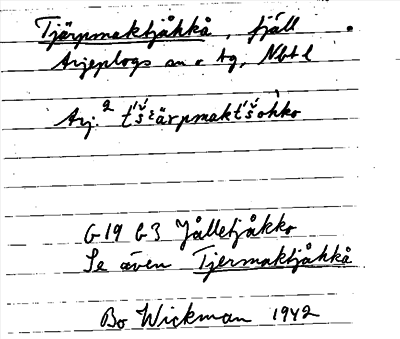 Tjärpmaktjåkkå, fjäll
Arjeplogs sn o tg, Nbt l
Arj. 2 t'š́ɛärpmakt'š́ohko
G19 G3 Jålletjåkko
Se även Tjermaktjåhkå
Bo Wickman 1942